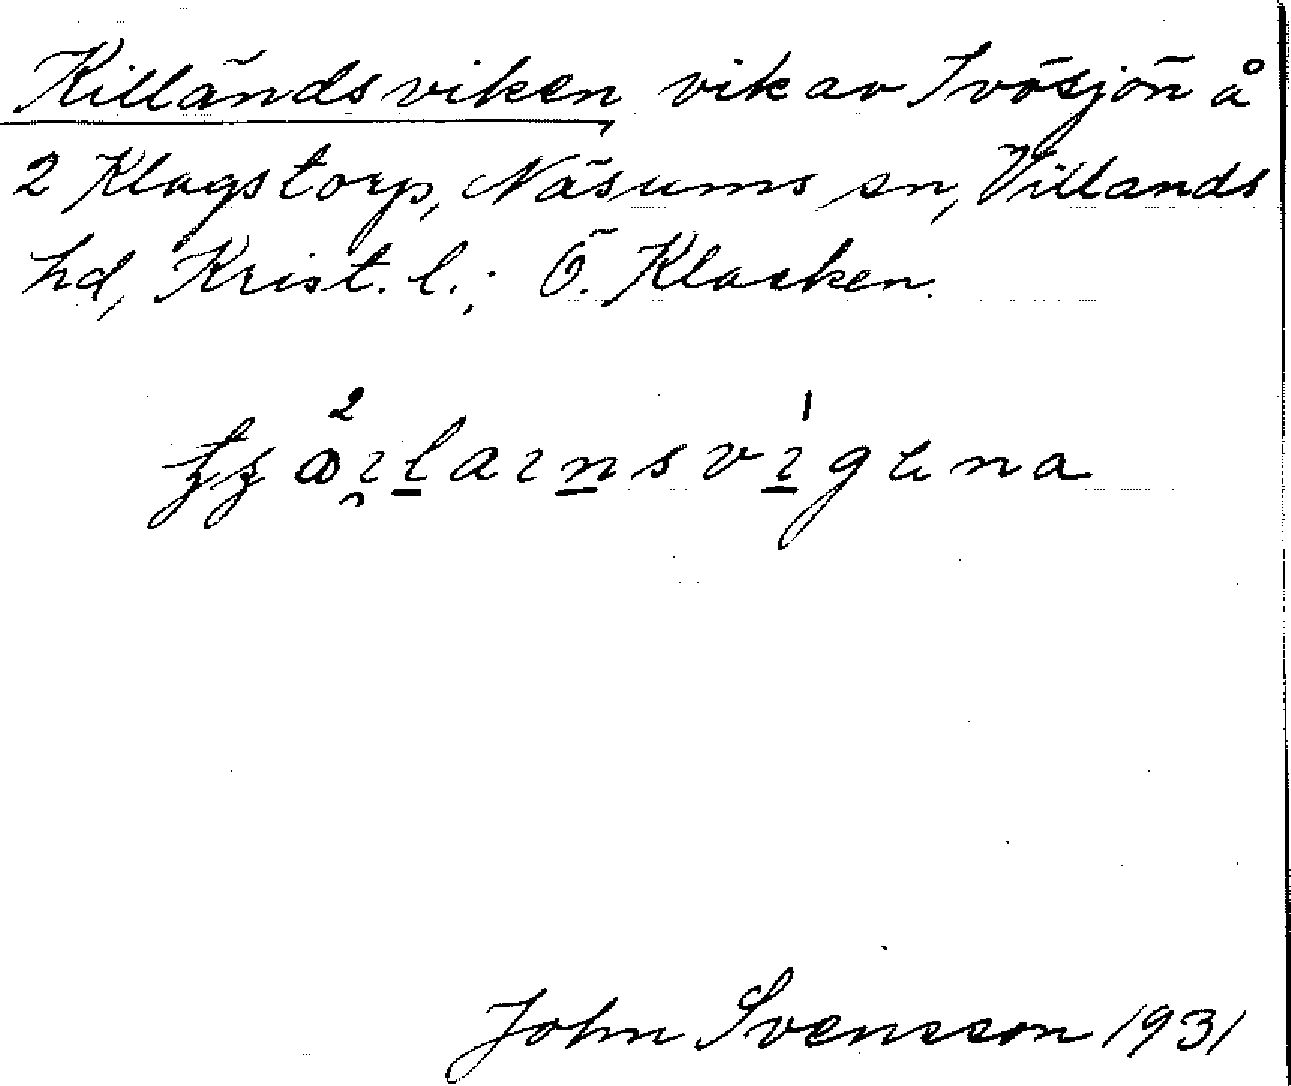 Killändsviken, vik av Ivösjön å
2 Klagstorp, Näsums sn, Villands
hd, Krist. l.; Ö. Klacken.
John Svensson 1931